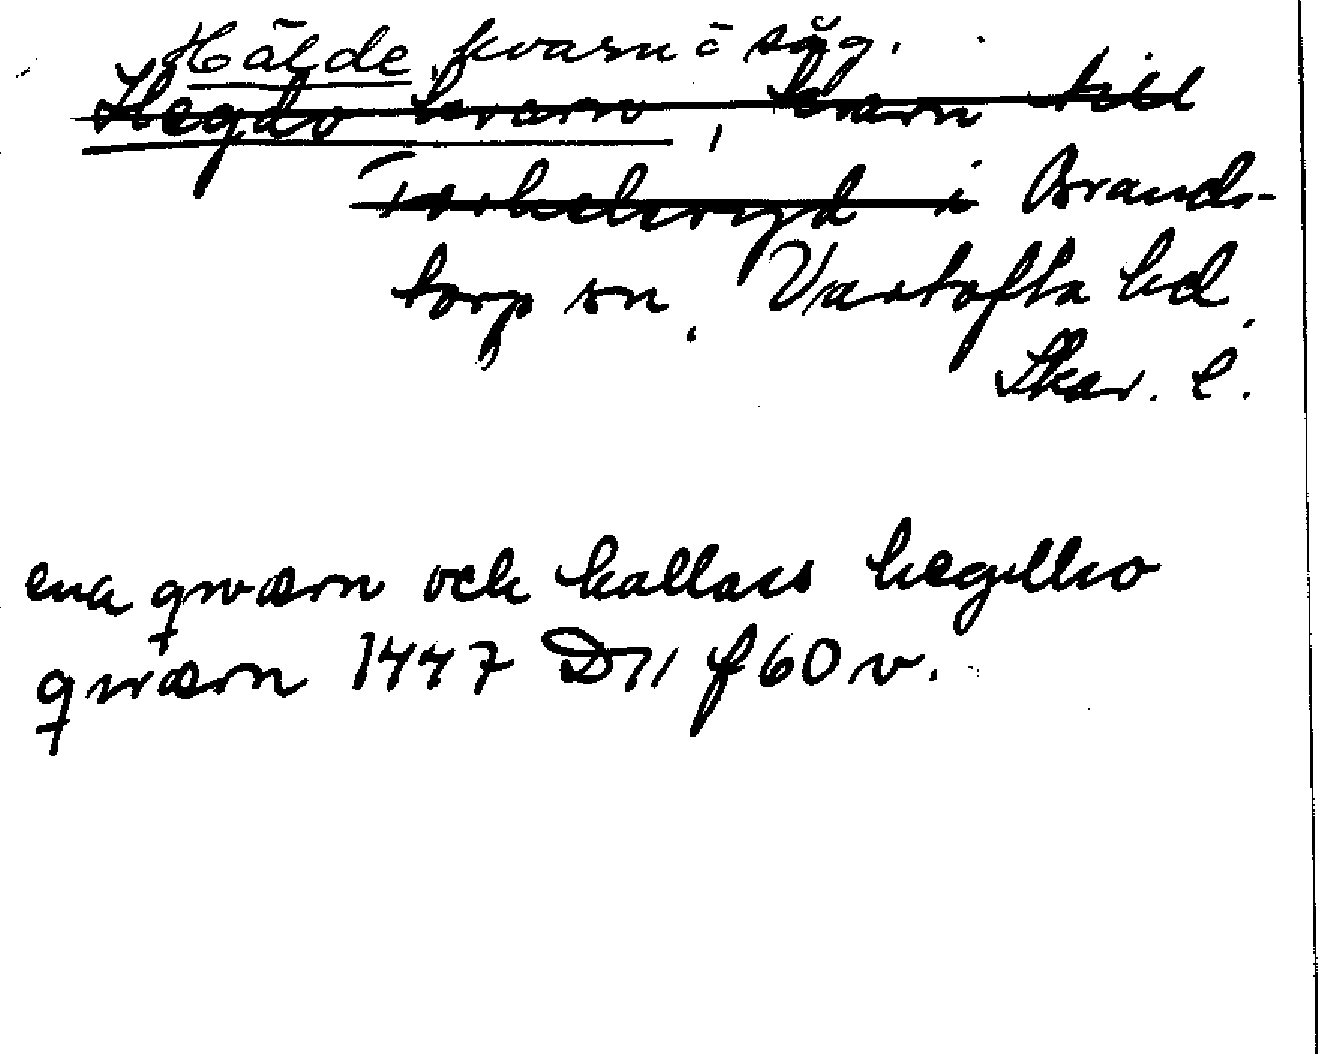 Hälde kvarn o såg.
Hegdo kvarn, kvarn till
Torkelsryd i Brands-
torp sn. Vartofta hd.
Skar. l.
ena qwærn och kallass hegdho
qwærn 1447 D 11 f 60 v.